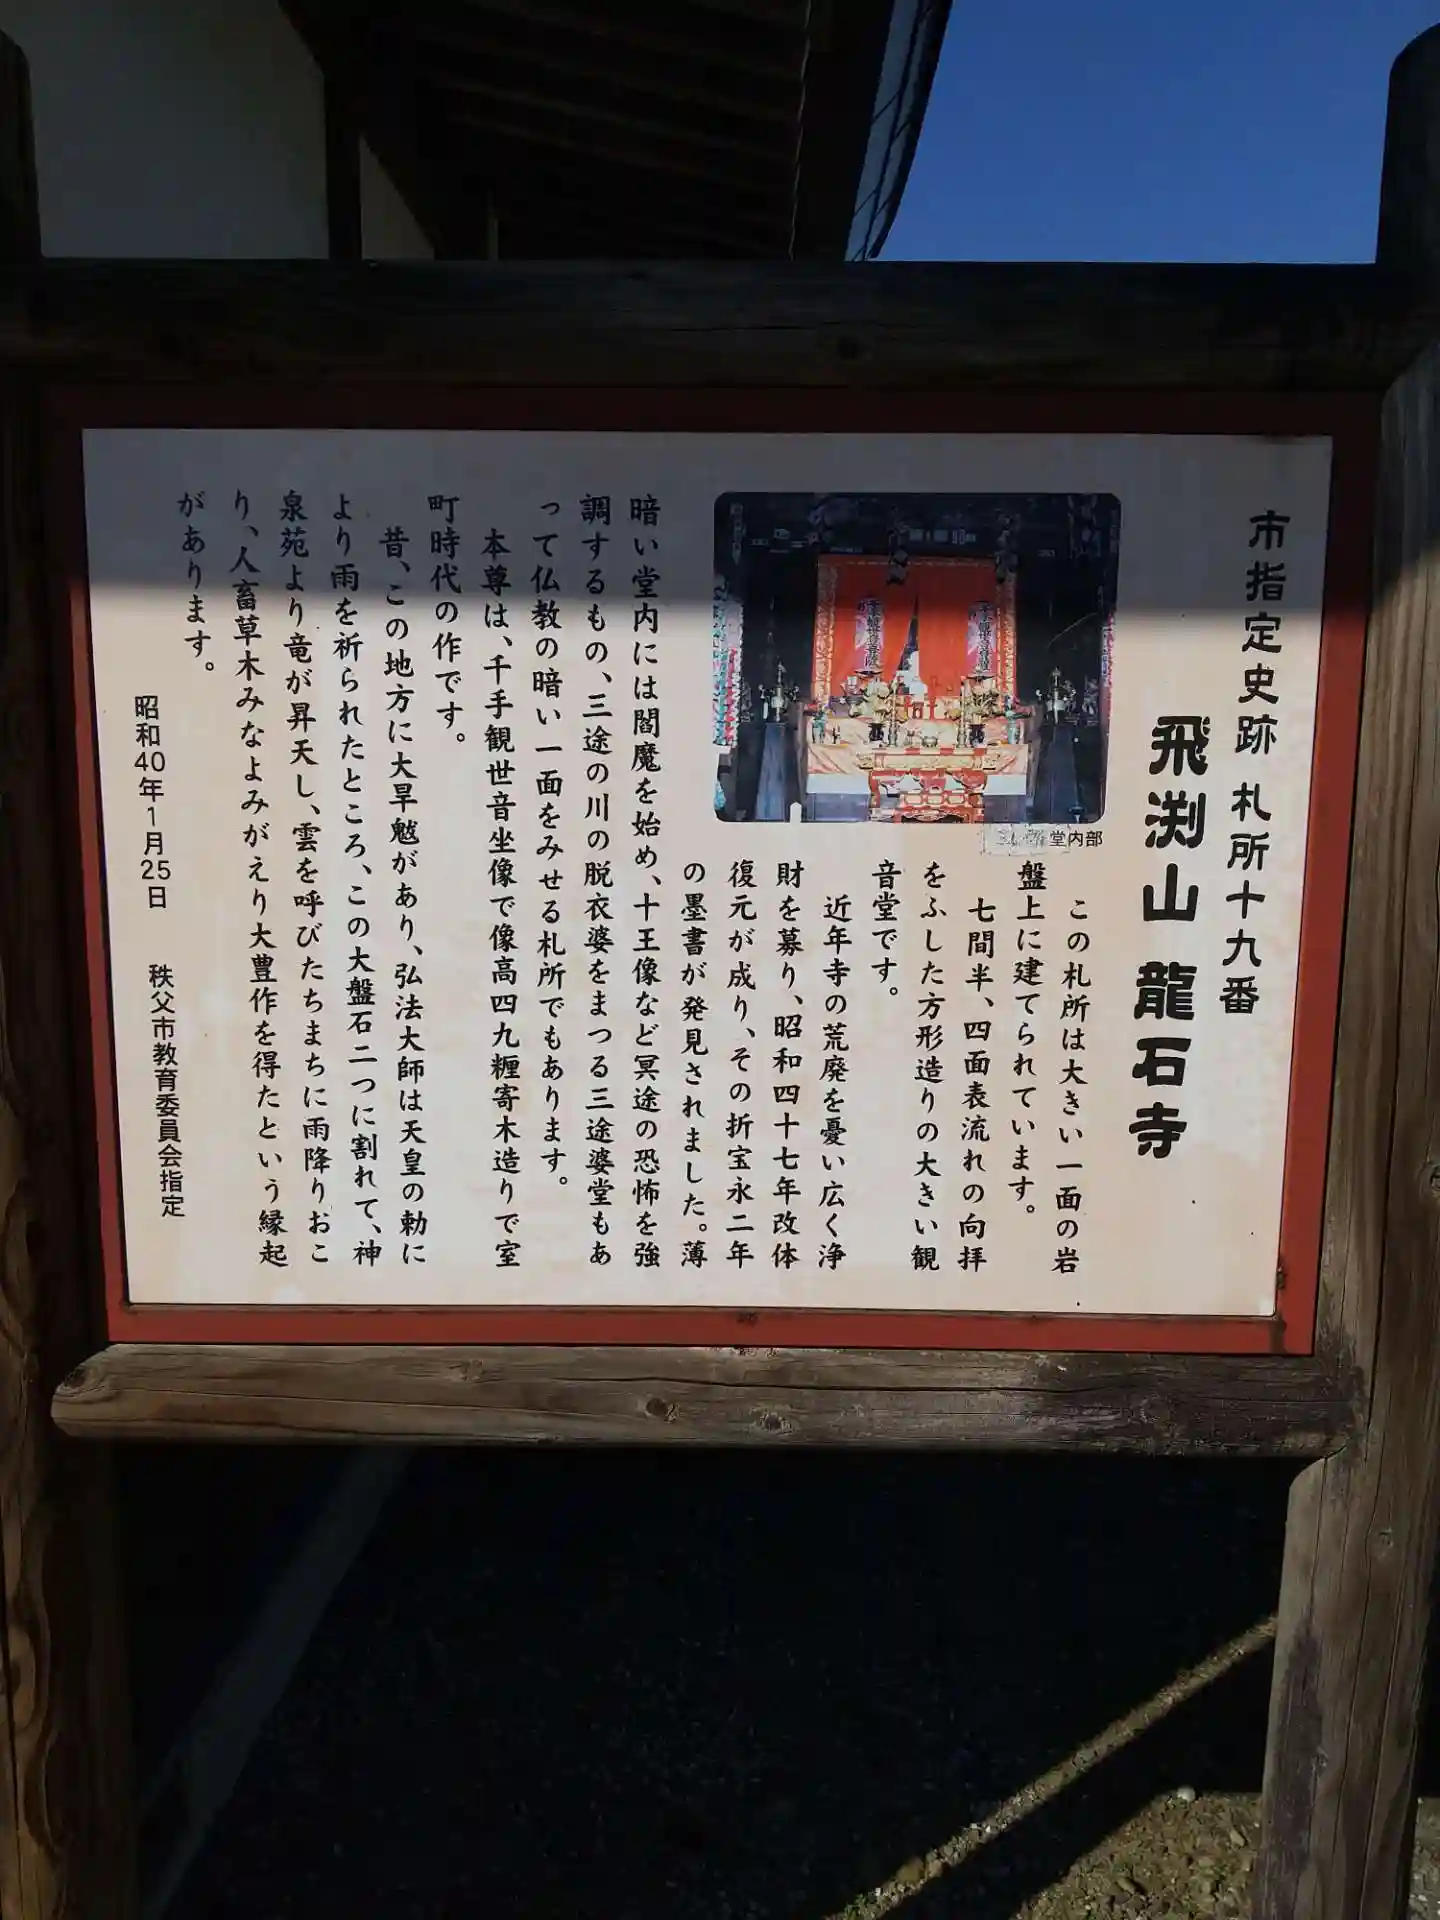 市指定史跡 札所十九番
飛渕山 龍石寺
堂内部
この札所は大きい一面の岩
盤上に建てられています。
七間半、四面表流れの向拝
をふした方形造りの大きい観
音堂です。
近年寺の荒廃を憂い広く浄
財を募り、昭和四十七年改体
復元が成り、その折宝永二年
の墨書が発見されました。薄
暗い堂内には閻魔を始め、十王像など冥途の恐怖を強
調するもの、三途の川の脱衣婆をまつる三途婆堂もあ
って仏教の暗い一面をみせる札所でもあります。
本尊は、千手観世音坐像で像高四九糎寄木造りで室
町時代の作です。
昔、この地方に大旱魃があり、弘法大師は天皇の勅に
より雨を祈られたところ、この大盤石二つに割れて、神
泉苑より竜が昇天し、雲を呼びたちまちに雨降りおこ
り、人畜草木みなよみがえり大豊作を得たという縁起
があります。
昭和40年1月25日 秩父市教育委員会指定